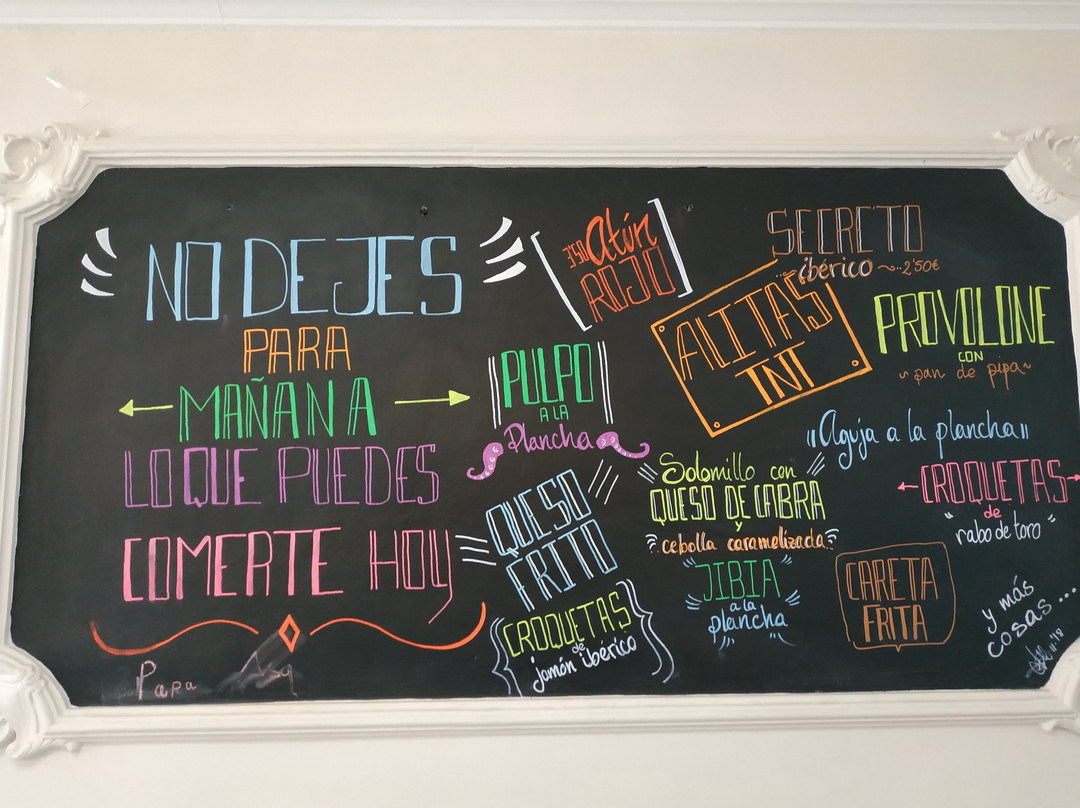 NO DEJES
PARA
MAÑANA
LO QUE PUEDES
COMERTE HOY
Para
3'50 Atún
ROJO
SECRETO
ibérico ~ 2'50€
ALITAS
TNT
PROVOLONE
CON
~ pan de pipa ~
PULPO
A LA
Plancha
"Aguja a la plancha"
Solomillo con
QUESO DE CABRA
y
cebolla caramelizada
CROQUETAS
de
"rabo de toro"
QUESO
FRITO
JIBIA
a la
plancha
CARETA
FRITA
CROQUETAS
de
jamón ibérico
y más
cosas...